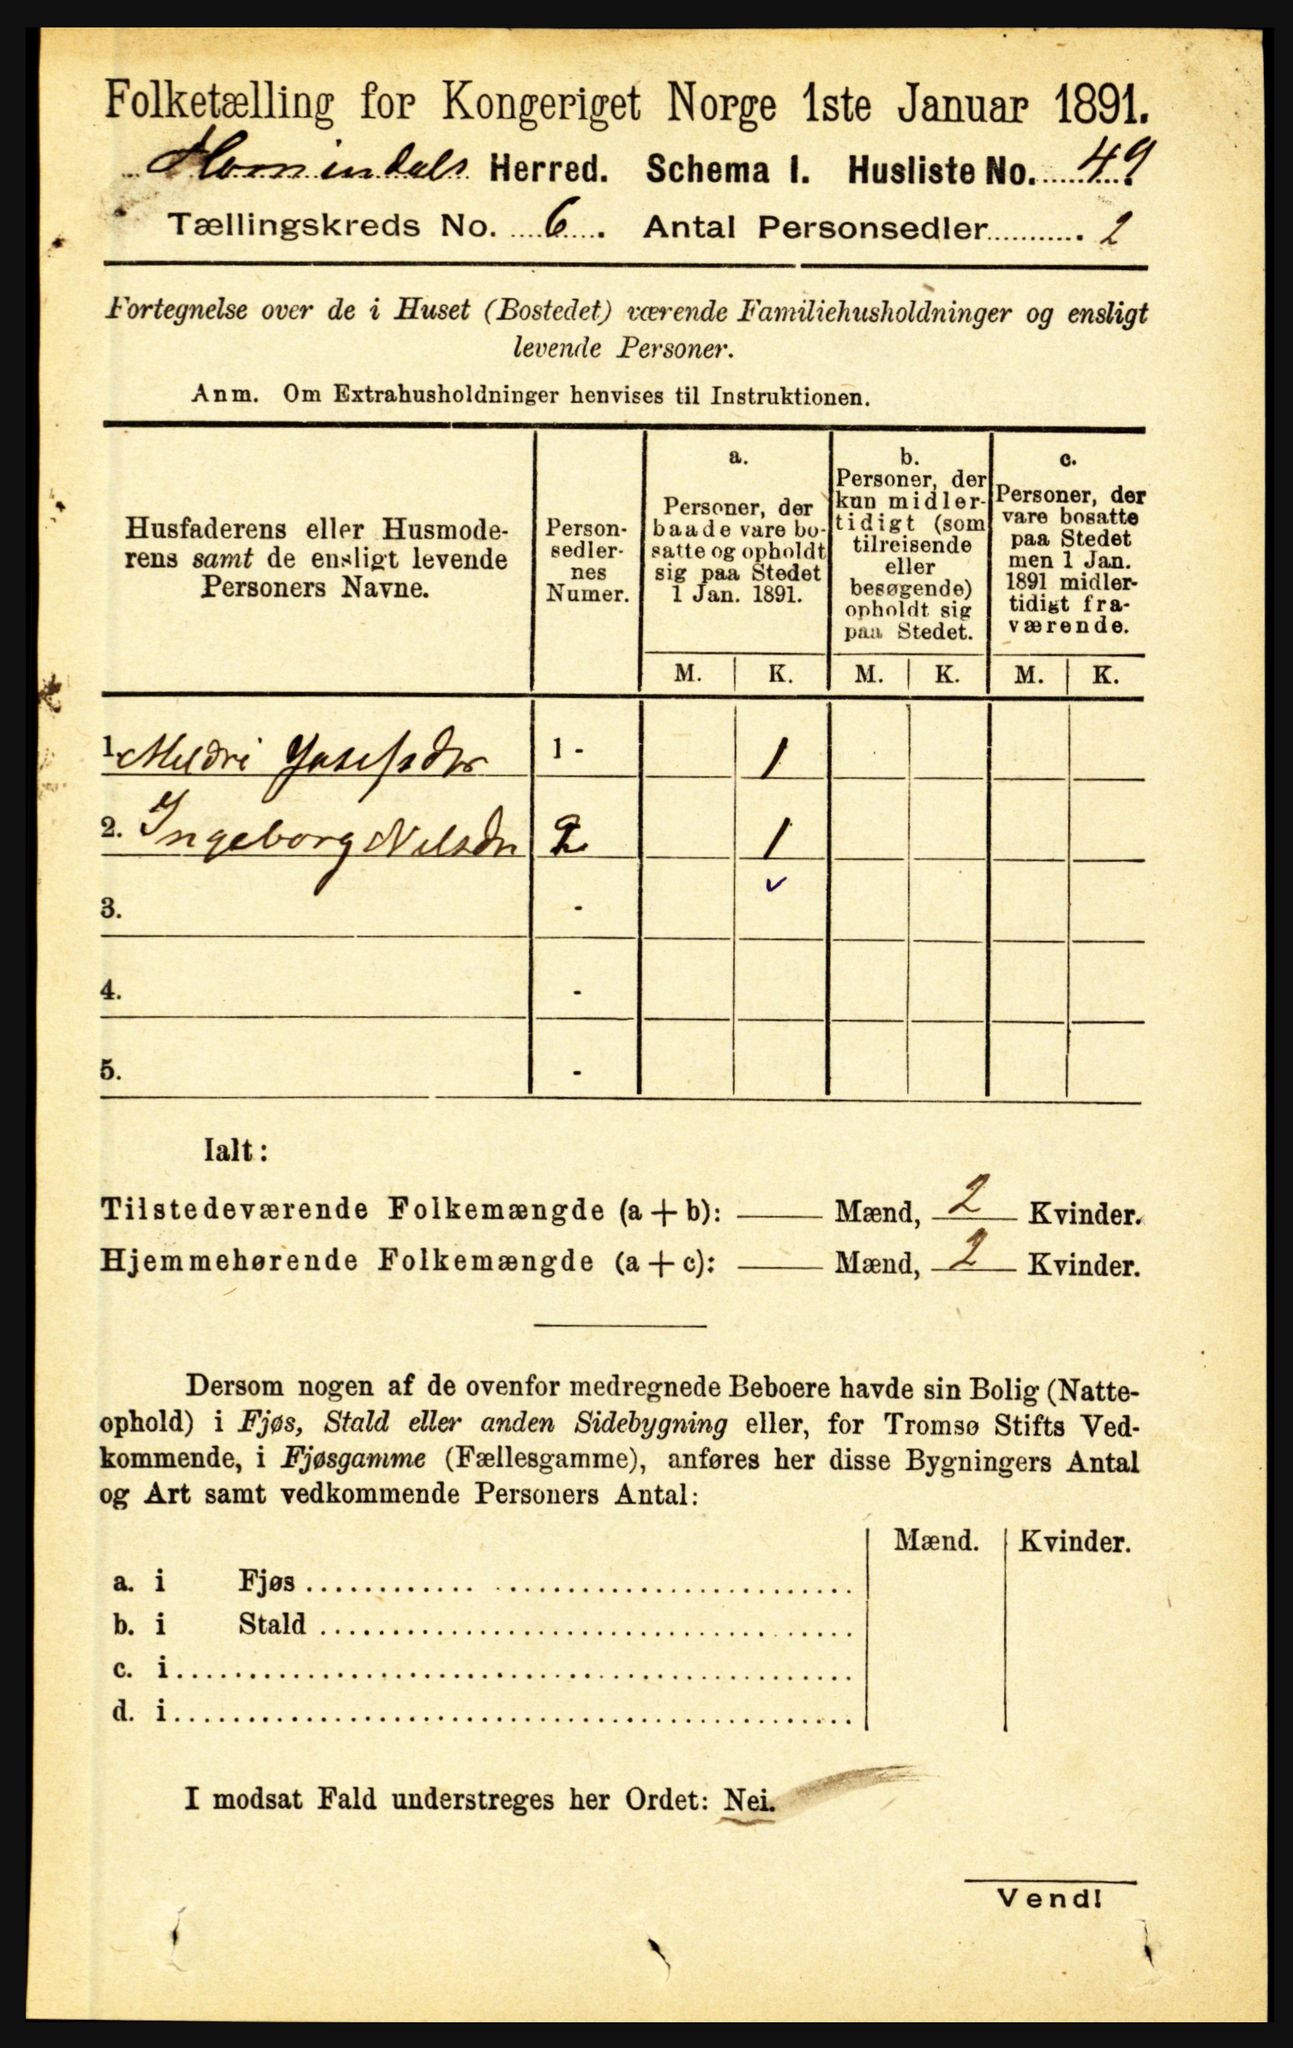 Folketælling for Kongeriget Norge 1ste Januar 1891.
Hornindals Herred. Schema I. Husliste No. 49
Tællingskreds No. 6. Antal Personsedler 2
Fortegnelse over de i Huset (Bostedet) værende Familiehusholdninger og ensligt
levende Personer.
Anm. Om Extrahusholdninger henvises til Instruktionen.
Husfaderens eller Husmode-
rens samt de ensligt levende
Personers Navne.
Person-
sedler-
nes
Numer.
a.
Personer, der
baade vare bo-
satte og opholdt
sig paa Stedet
1 Jan. 1891.
b.
Personer, der
kun midler-
tidigt (som
tilreisende
eller
besøgende)
opholdt sig
paa Stedet.
c.
Personer, der
vare bosatte
paa Stedet
men 1 Jan.
1891 midler-
tidigt fra-
værende.
M. K. M. K. M. K.
1. Meldri Josefsdtr 1 - 1
2. Ingeborg Nelsdtr 2 1
3. -
4. -
5. -
Ialt:
Tilstedeværende Folkemængde (a + b): — Mænd, 2 Kvinder.
Hjemmehørende Folkemængde (a + c): — Mænd, 2 Kvinder.
Dersom nogen af de ovenfor medregnede Beboere havde sin Bolig (Natte-
ophold) i Fjøs, Stald eller anden Sidebygning eller, for Tromsø Stifts Ved-
kommende, i Fjøsgamme (Fællesgamme), anføres her disse Bygningers Antal
og Art samt vedkommende Personers Antal:
Mænd. Kvinder.
a. i Fjøs
b. i Stald
c. i
d. i
I modsat Fald understreges her Ordet: Nei.
Vend!